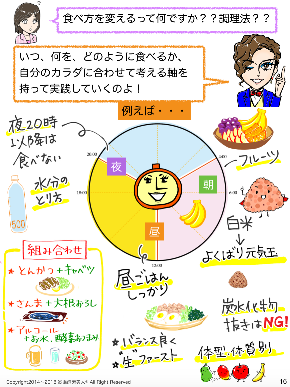 食べ方を変えるって何ですか？？調理法？？
いつ、何を、どのように食べるか、
自分のカラダに合わせて考える軸を
持って実践していくのよ！
例えば・・・
夜20時
以降は
食べない
水分の
とり方
夜
朝
昼
20:00
4:00
12:00
フルーツ
白米
↓
よくばり元気玉
炭水化物
抜きはNG!
体型・体質別
昼ごはん
しっかり
★バランス良く
★"生"ファースト
組み合わせ
★とんかつ+キャベツ
★さんま+大根おろし
★アルコール
+お水、酵素おつまみ
16